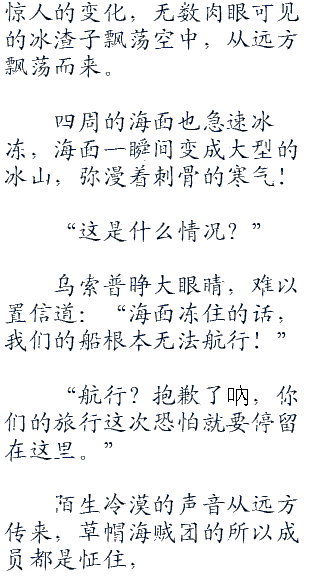 惊人的变化，无数肉眼可见
的冰渣子飘荡空中，从远方
飘荡而来。
四周的海面也急速冰
冻，海面一瞬间变成大型的
冰山，弥漫着刺骨的寒气！
“这是什么情况？”
乌索普睁大眼睛，难以
置信道：“海面冻住的话，
我们的船根本无法航行！”
“航行？抱歉了呐，你
们的旅行这次恐怕就要停留
在这里。”
陌生冷漠的声音从远方
传来，草帽海贼团的所以成
员都是怔住，